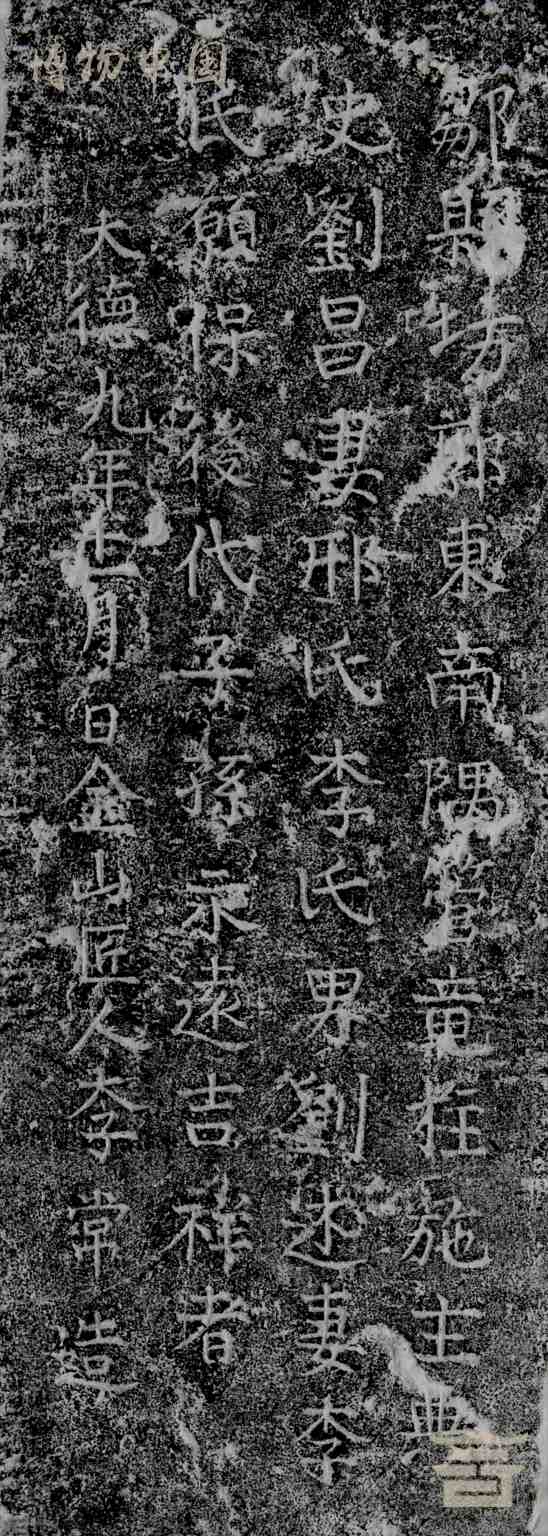 博物中国
鄒縣坊郭東南隅管竜柱施主典
史劉昌妻邢氏李氏男劉述妻李
氏願保後代子孫永遠吉祥者
大德九年十二月日金山匠人李常造